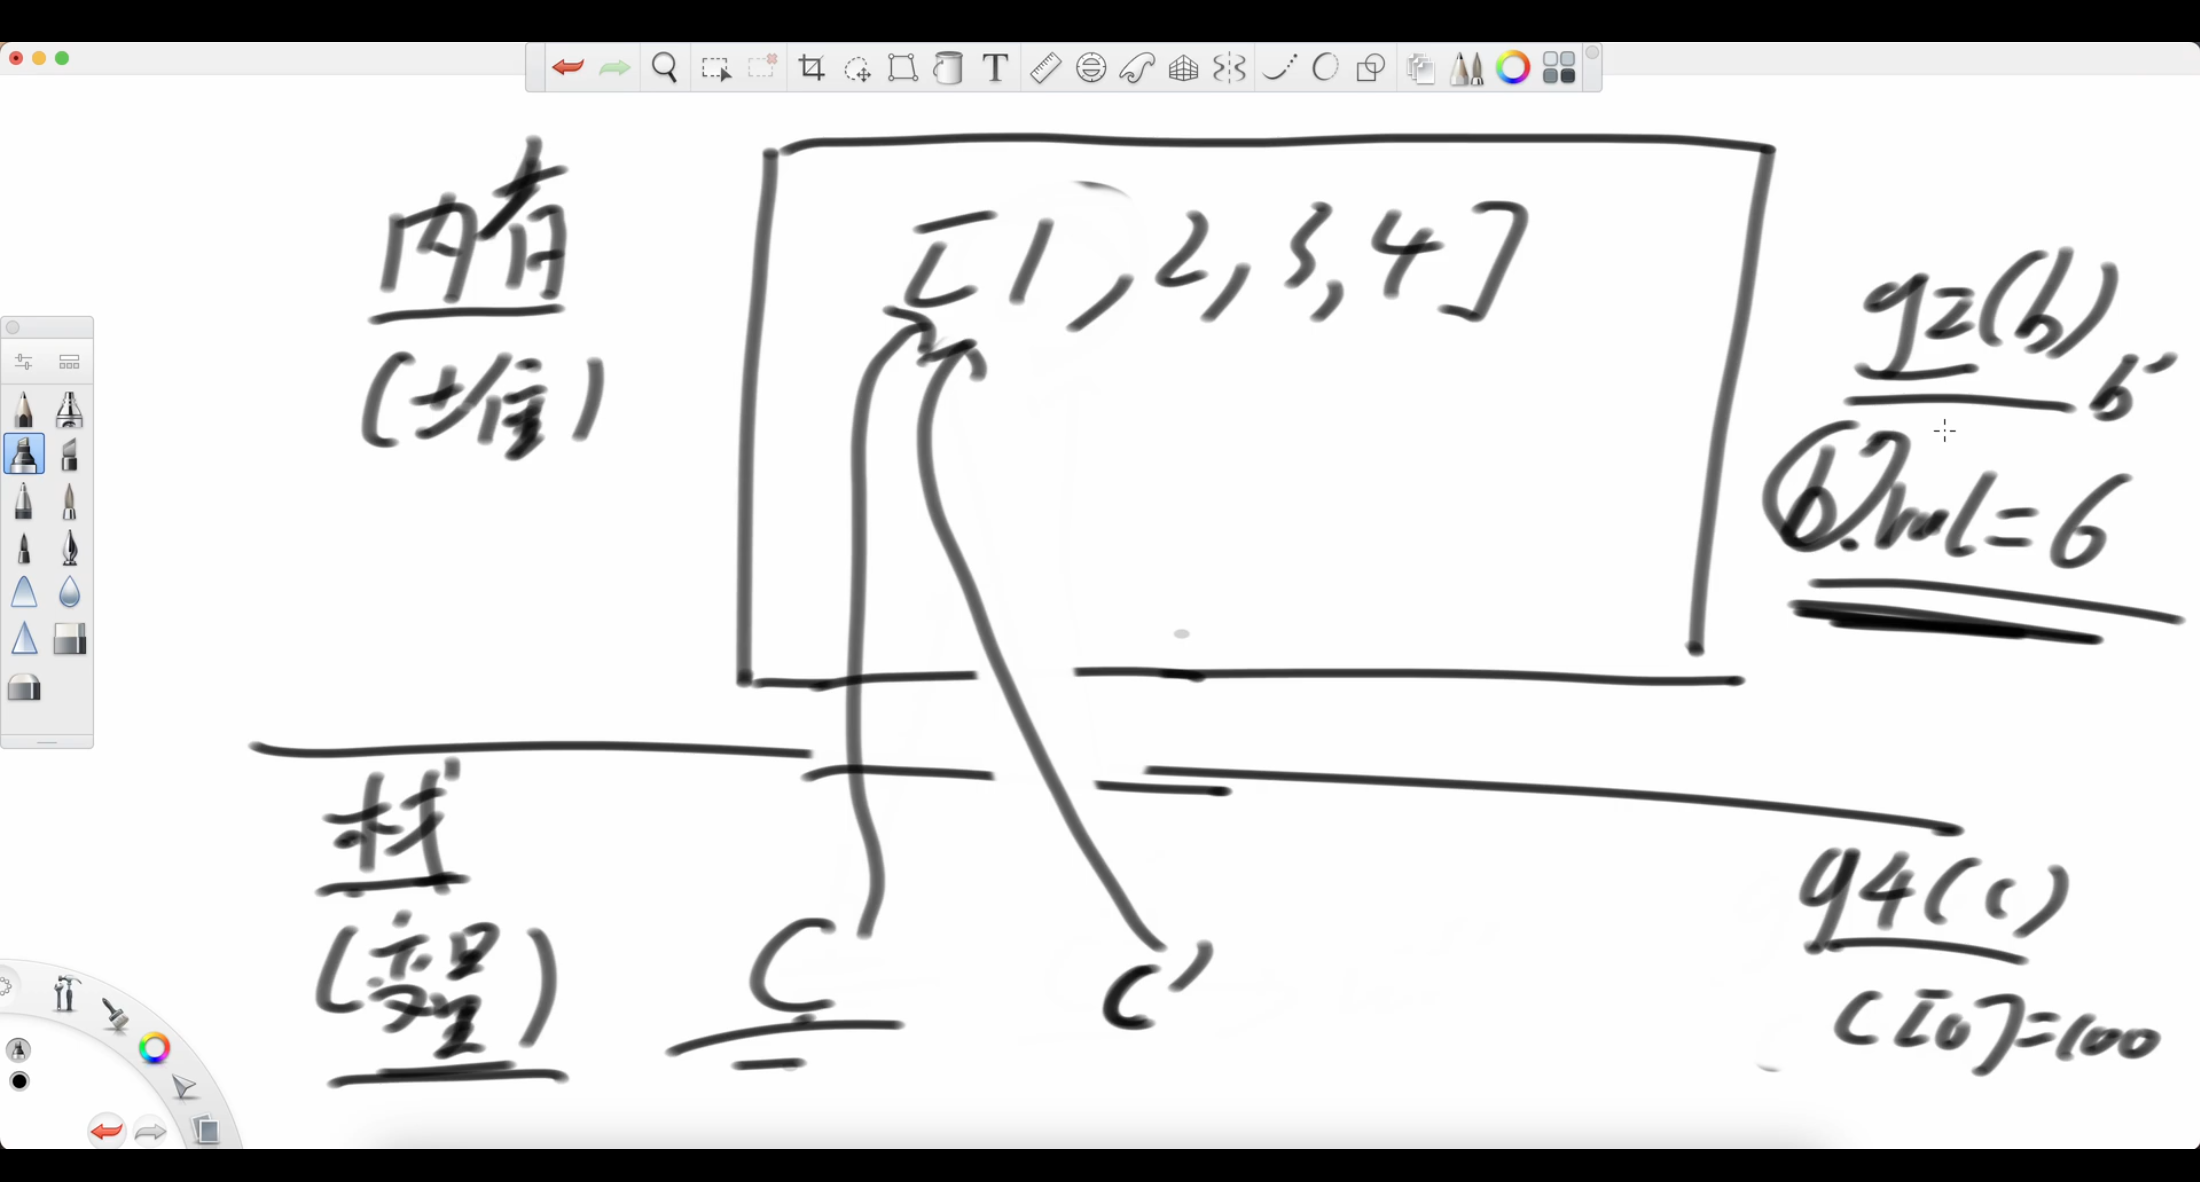 内存
(堆)
[1,2,3,4]
g2(b)
b'
b.val=6
栈
(变量)
C
C'
g4(c)
c[0]=100